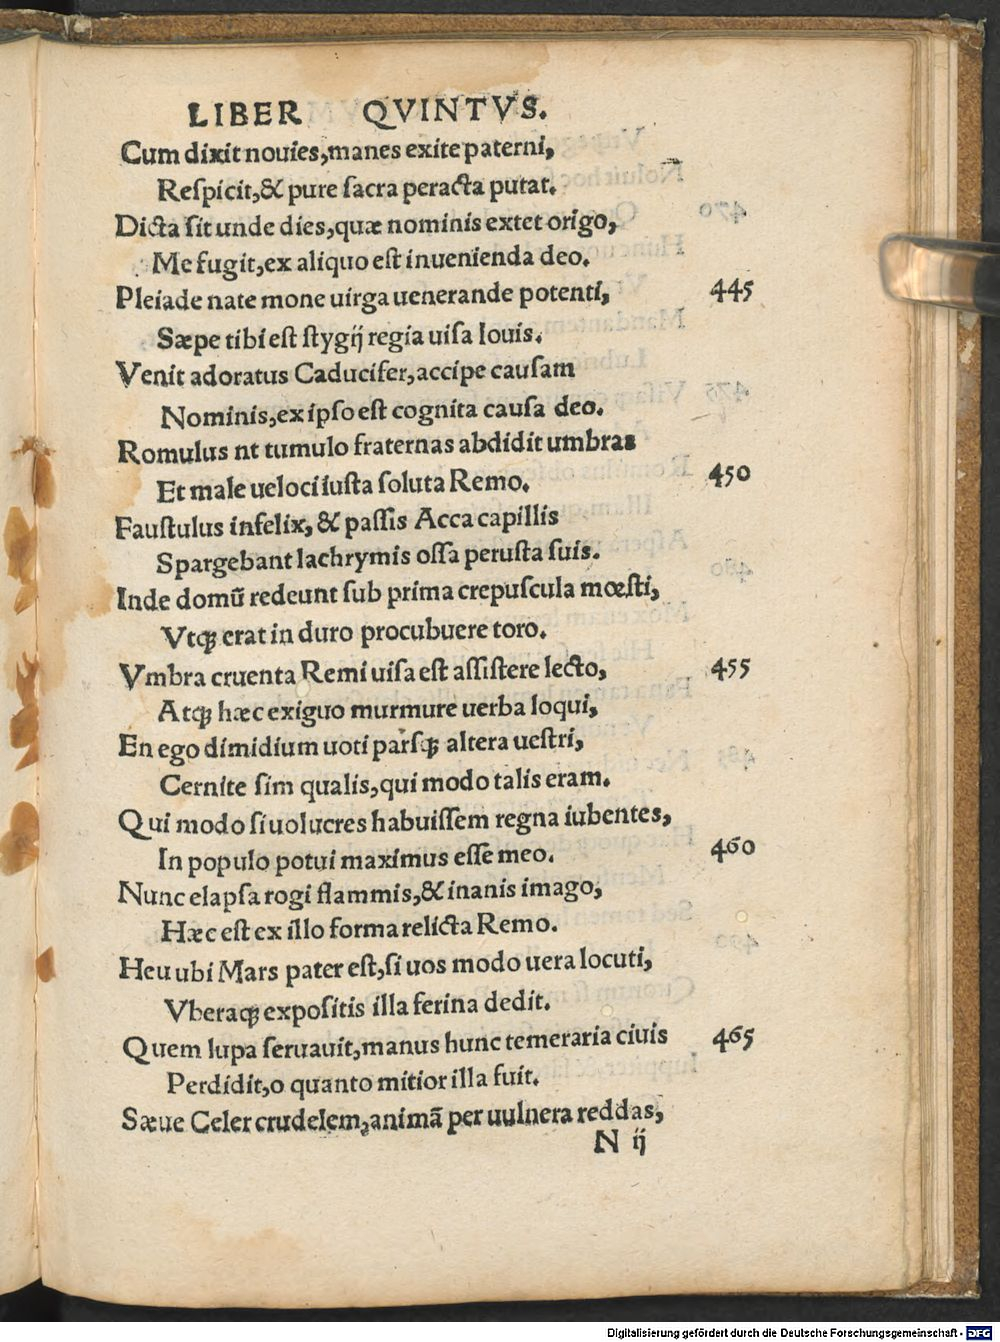 LIBER QVINTVS.
Cum dixit nouies,manes exite paterni,
Reſpicit,& pure ſacra peracta putat.
Dicta ſit unde dies,quæ nominis extet origo,
Me fugit,ex aliquo eſt inuenienda deo.
Pleiade nate mone uirga uenerande potenti, 445
Sæpe tibi eſt ſtygij regia uiſa Iouis.
Venit adoratus Caducifer,accipe cauſam
Nominis,ex ipſo eſt cognita cauſa deo.
Romulus nt tumulo fraternas abdidit umbras
Et male ueloci iuſta ſoluta Remo. 450
Fauſtulus infelix, & paſſis Acca capillis
Spargebant lachrymis oſſa peruſta ſuis.
Inde domū redeunt ſub prima crepuſcula mœſti,
Vtꝗ erat in duro procubuere toro.
Vmbra cruenta Remi uiſa eſt aſſiſtere lecto, 455
Atꝗ hæc exiguo murmure uerba loqui,
En ego dimidium uoti parſꝗ altera ueſtri,
Cernite ſim qualis,qui modo talis eram.
Qui modo ſi uolucres habuiſſem regna iubentes,
In populo potui maximus eſſe meo. 460
Nunc elapſa rogi flammis,& inanis imago,
Hæc eſt ex illo forma relicta Remo.
Heu ubi Mars pater eſt,ſi uos modo uera locuti,
Vberaꝗ expoſitis illa ferina dedit.
Quem lupa ſeruauit,manus hunc temeraria ciuis 465
Perdidit,o quanto mitior illa fuit.
Sæue Celer crudelem,animā per uulnera reddas,
N ij
Digitalisierung gefördert durch die Deutsche Forschungsgemeinschaft - DFG